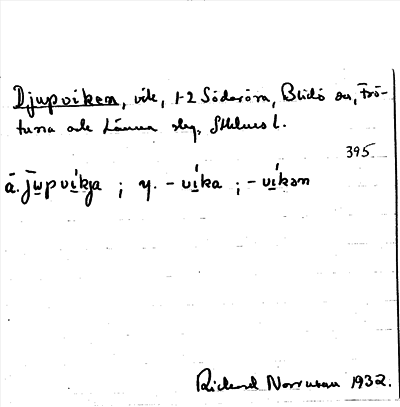 Djupviken, vik, 1-2 Söderöra, Blidö sn, Frö-
tuna och Länna slg, Sthlms l.
395
ä. jupvíkja ; y. - víka ; - víkən
Rickard Norrman 1932.